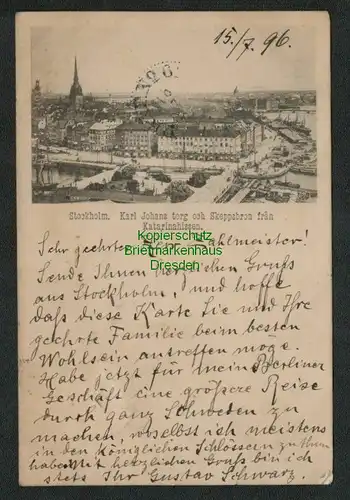 15./7. 96.
Stockholm. Karl Johans torg och Skeppsbron från
Katarinahissen.
Kopierschutz
Briefmarkenhaus
Dresden
Sehr geehrter Herr Zahlmeister!
Sende Ihnen herzlichen Gruss
aus Stockholm, und hoffe
daß diese Karte Sie und Ihre
geehrte Familie beim besten
Wohlsein antreffen möge.
Habe jetzt für mein Berliner
Geschäft eine größere Reise
durch ganz Schweden zu
machen, woselbst ich meistens
in den königlichen Schlössern zu thun
habe. Mit herzlichen Gruss bin ich
stets Ihr Gustav Schwarz.